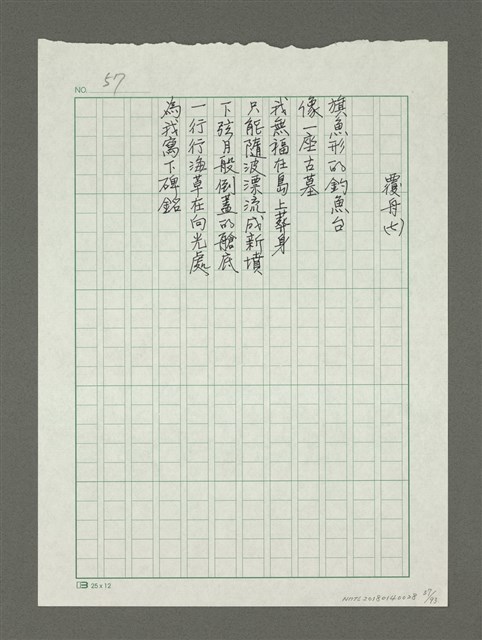 NO. 57
覆舟(七)
旗魚形的釣魚台
像一座古墓
我無福在島上葬身
只能隨波漂流成新墳
下弦月般倒蓋的艙底
一行行海草在向光處
為我寫下碑銘
25 x 12
NMTL20180140028
57/93